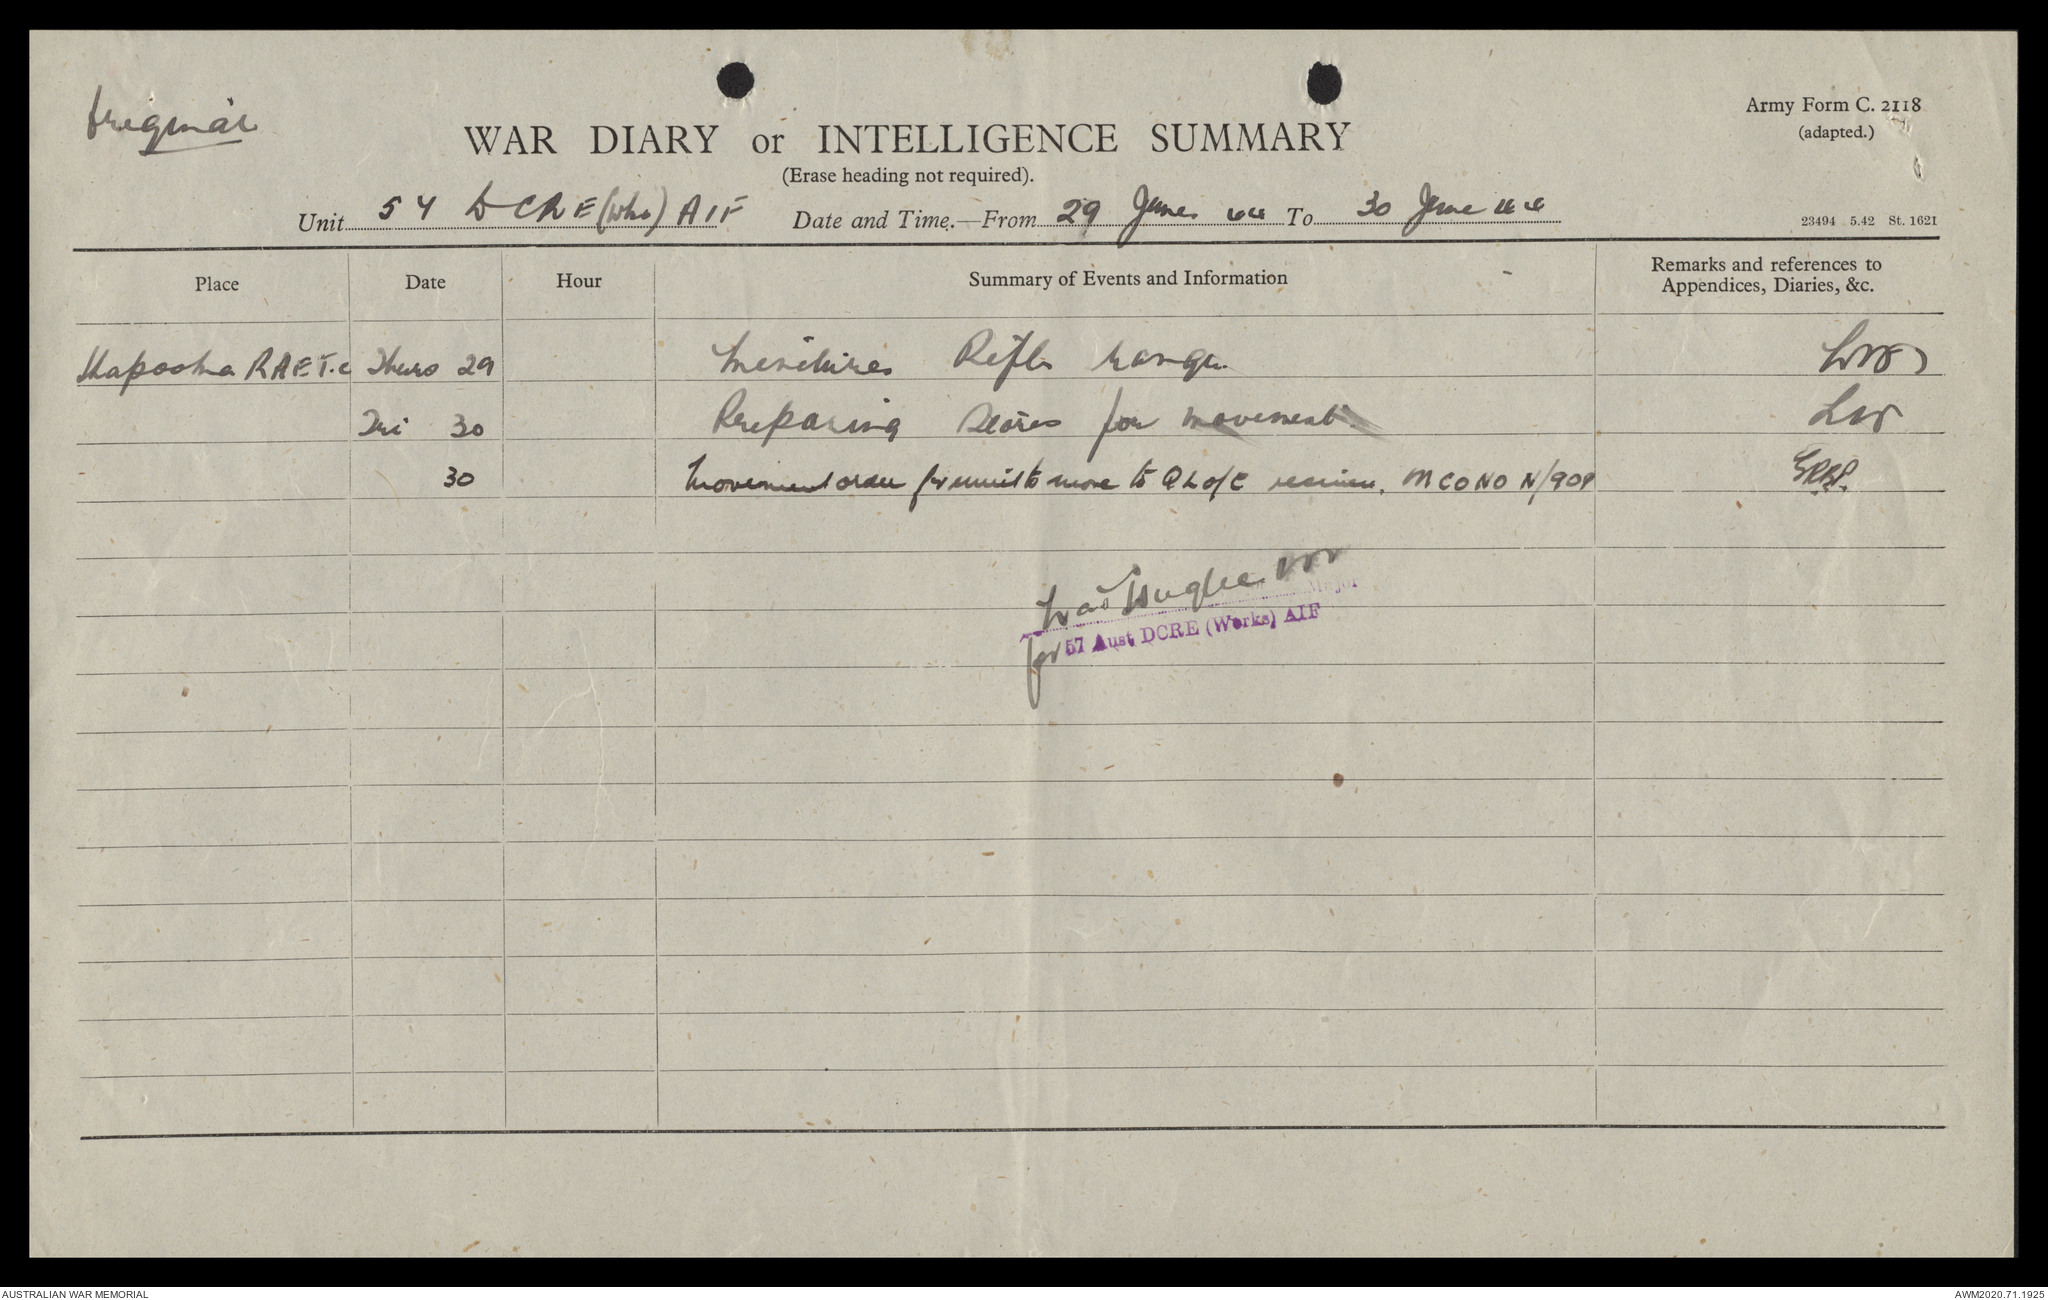 Original
Army Form C. 2118
(adapted.)
WAR DIARY or INTELLIGENCE SUMMARY
(Erase heading not required).
Unit 57 DCRE (Wks) AIF Date and Time.—From 29 June 44 To 30 June 44
23494 5.42 St. 1621
Place Date Hour Summary of Events and Information Remarks and references to Appendices, Diaries, &c.
Kapooka RAETC Thurs 29 Rifle range
Fri 30 Preparing Stores for movement.
30 Movement order for unit to move to Q L of C MCO NO N/909
Major
for 57 Aust DCRE (Works) AIF
AUSTRALIAN WAR MEMORIAL
AWM2020.71.1925